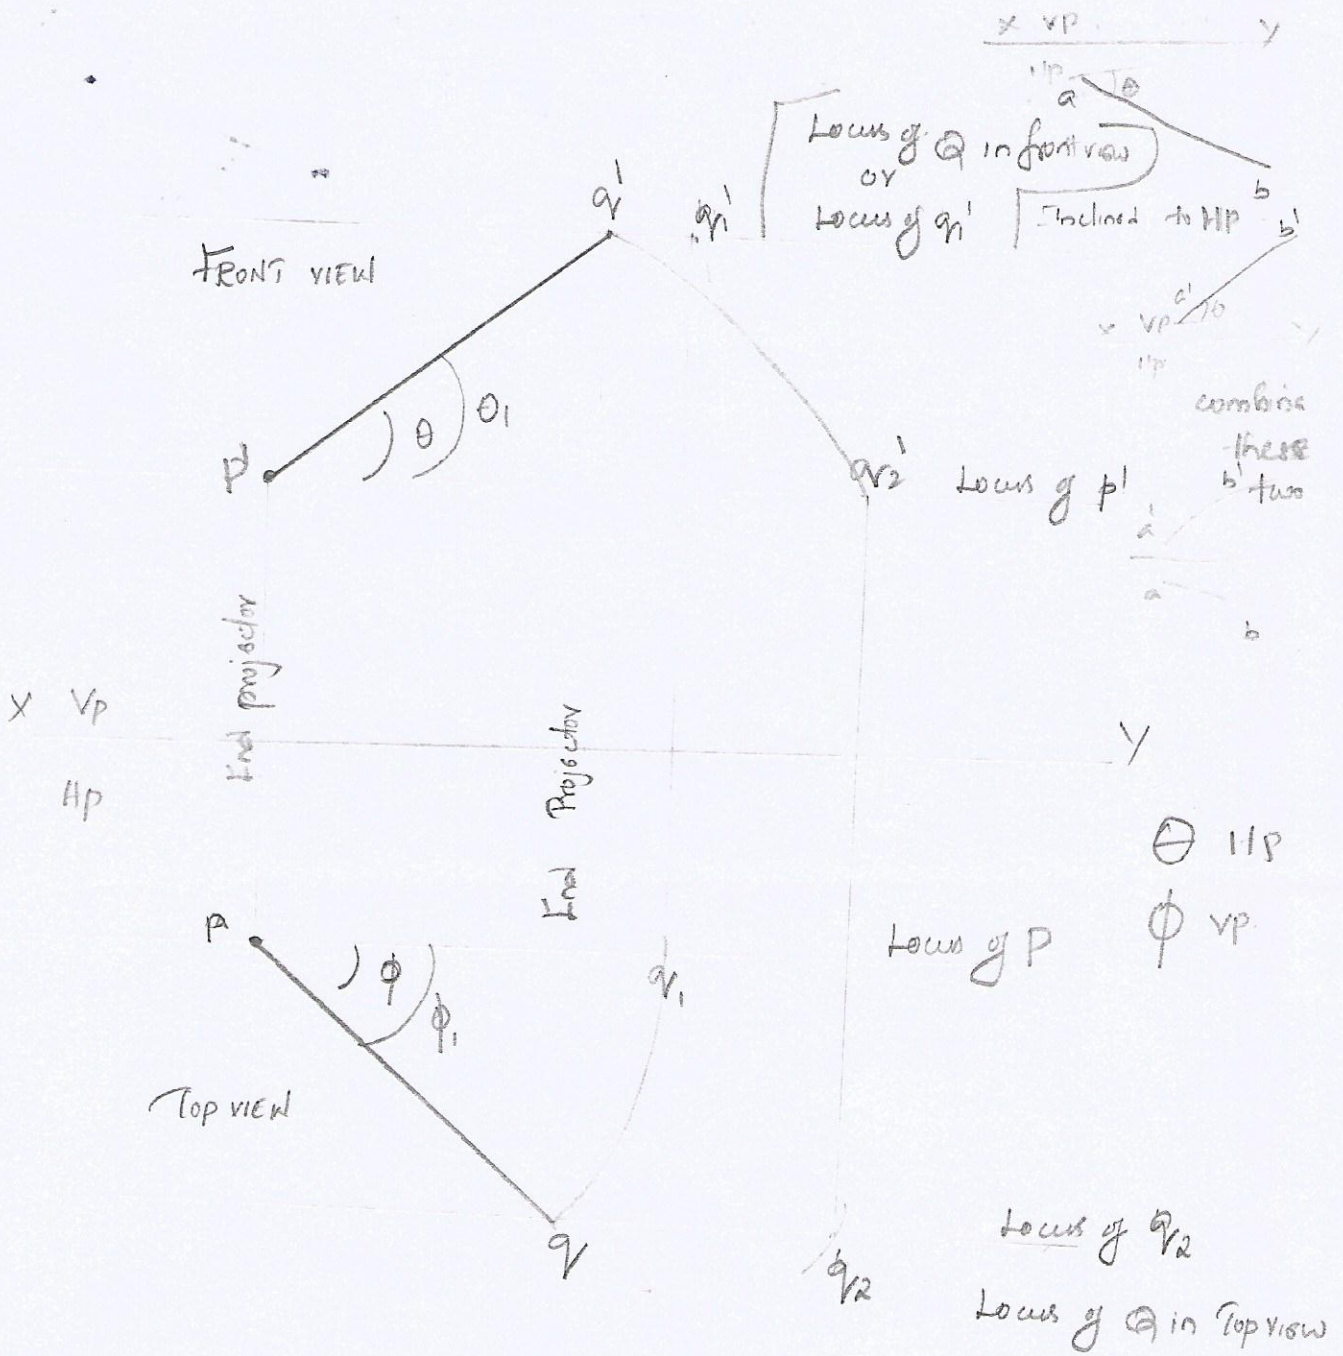 X VP Y
HP
a θ
b
Locus of Q in front view
or
Locus of q1'
Inclined to HP
b'
a' θ
X VP Y
HP
combine
these
two
b'
a'
a
b
q'
q1'
FRONT VIEW
θ θ1
p'
q2'
Locus of p'
End projector
X VP
HP
Y
End Projector
θ HP
ϕ VP
P
ϕ
ϕ1
q1
Locus of P
TOP VIEW
q
q2
Locus of q2
Locus of Q in Top view